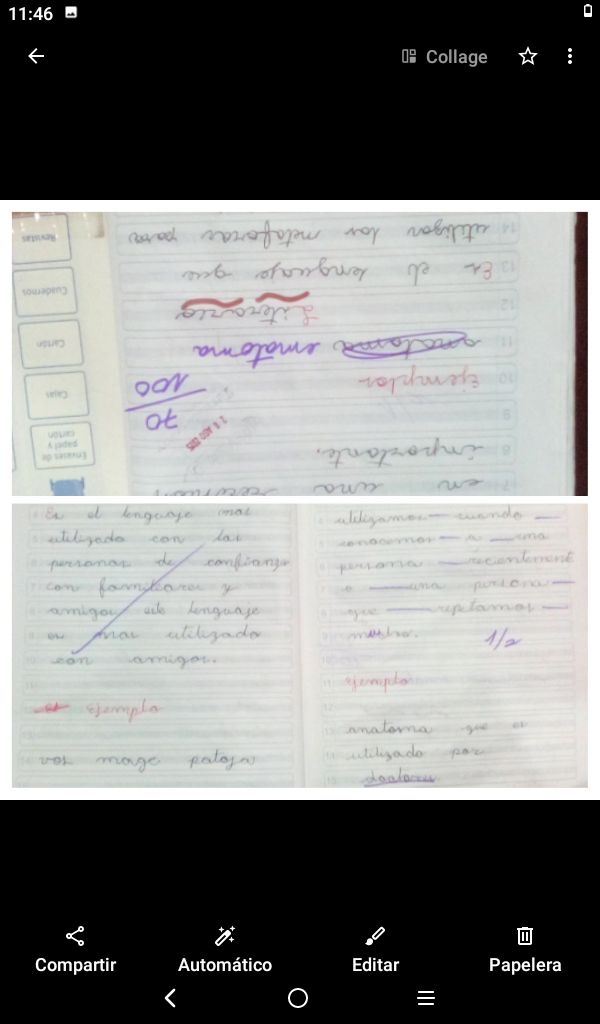 11:46
Collage
14 utilizar las metaforas para
13 Es el lenguaje que
12 Literario
11 anatoma ematoma
10 Ejemplos
9
8 importante.
7 en una
70
100
Revistas
Cuadernos
Cartón
Cajas
Envases de
papel y
cartón
Es el lenguaje mas
utilizado con las
personas de confianza
con familiares y
amigos este lenguaje
es mas utilizado
con amigos.
Ejemplo
vos mage patojas
utilizamos cuando
conocemos a una
persona recientement
o una persona
que repetamos
mustro.
1/2
ejemplo
anatoma que es
utilizado por
doctores
Compartir
Automático
Editar
Papelera